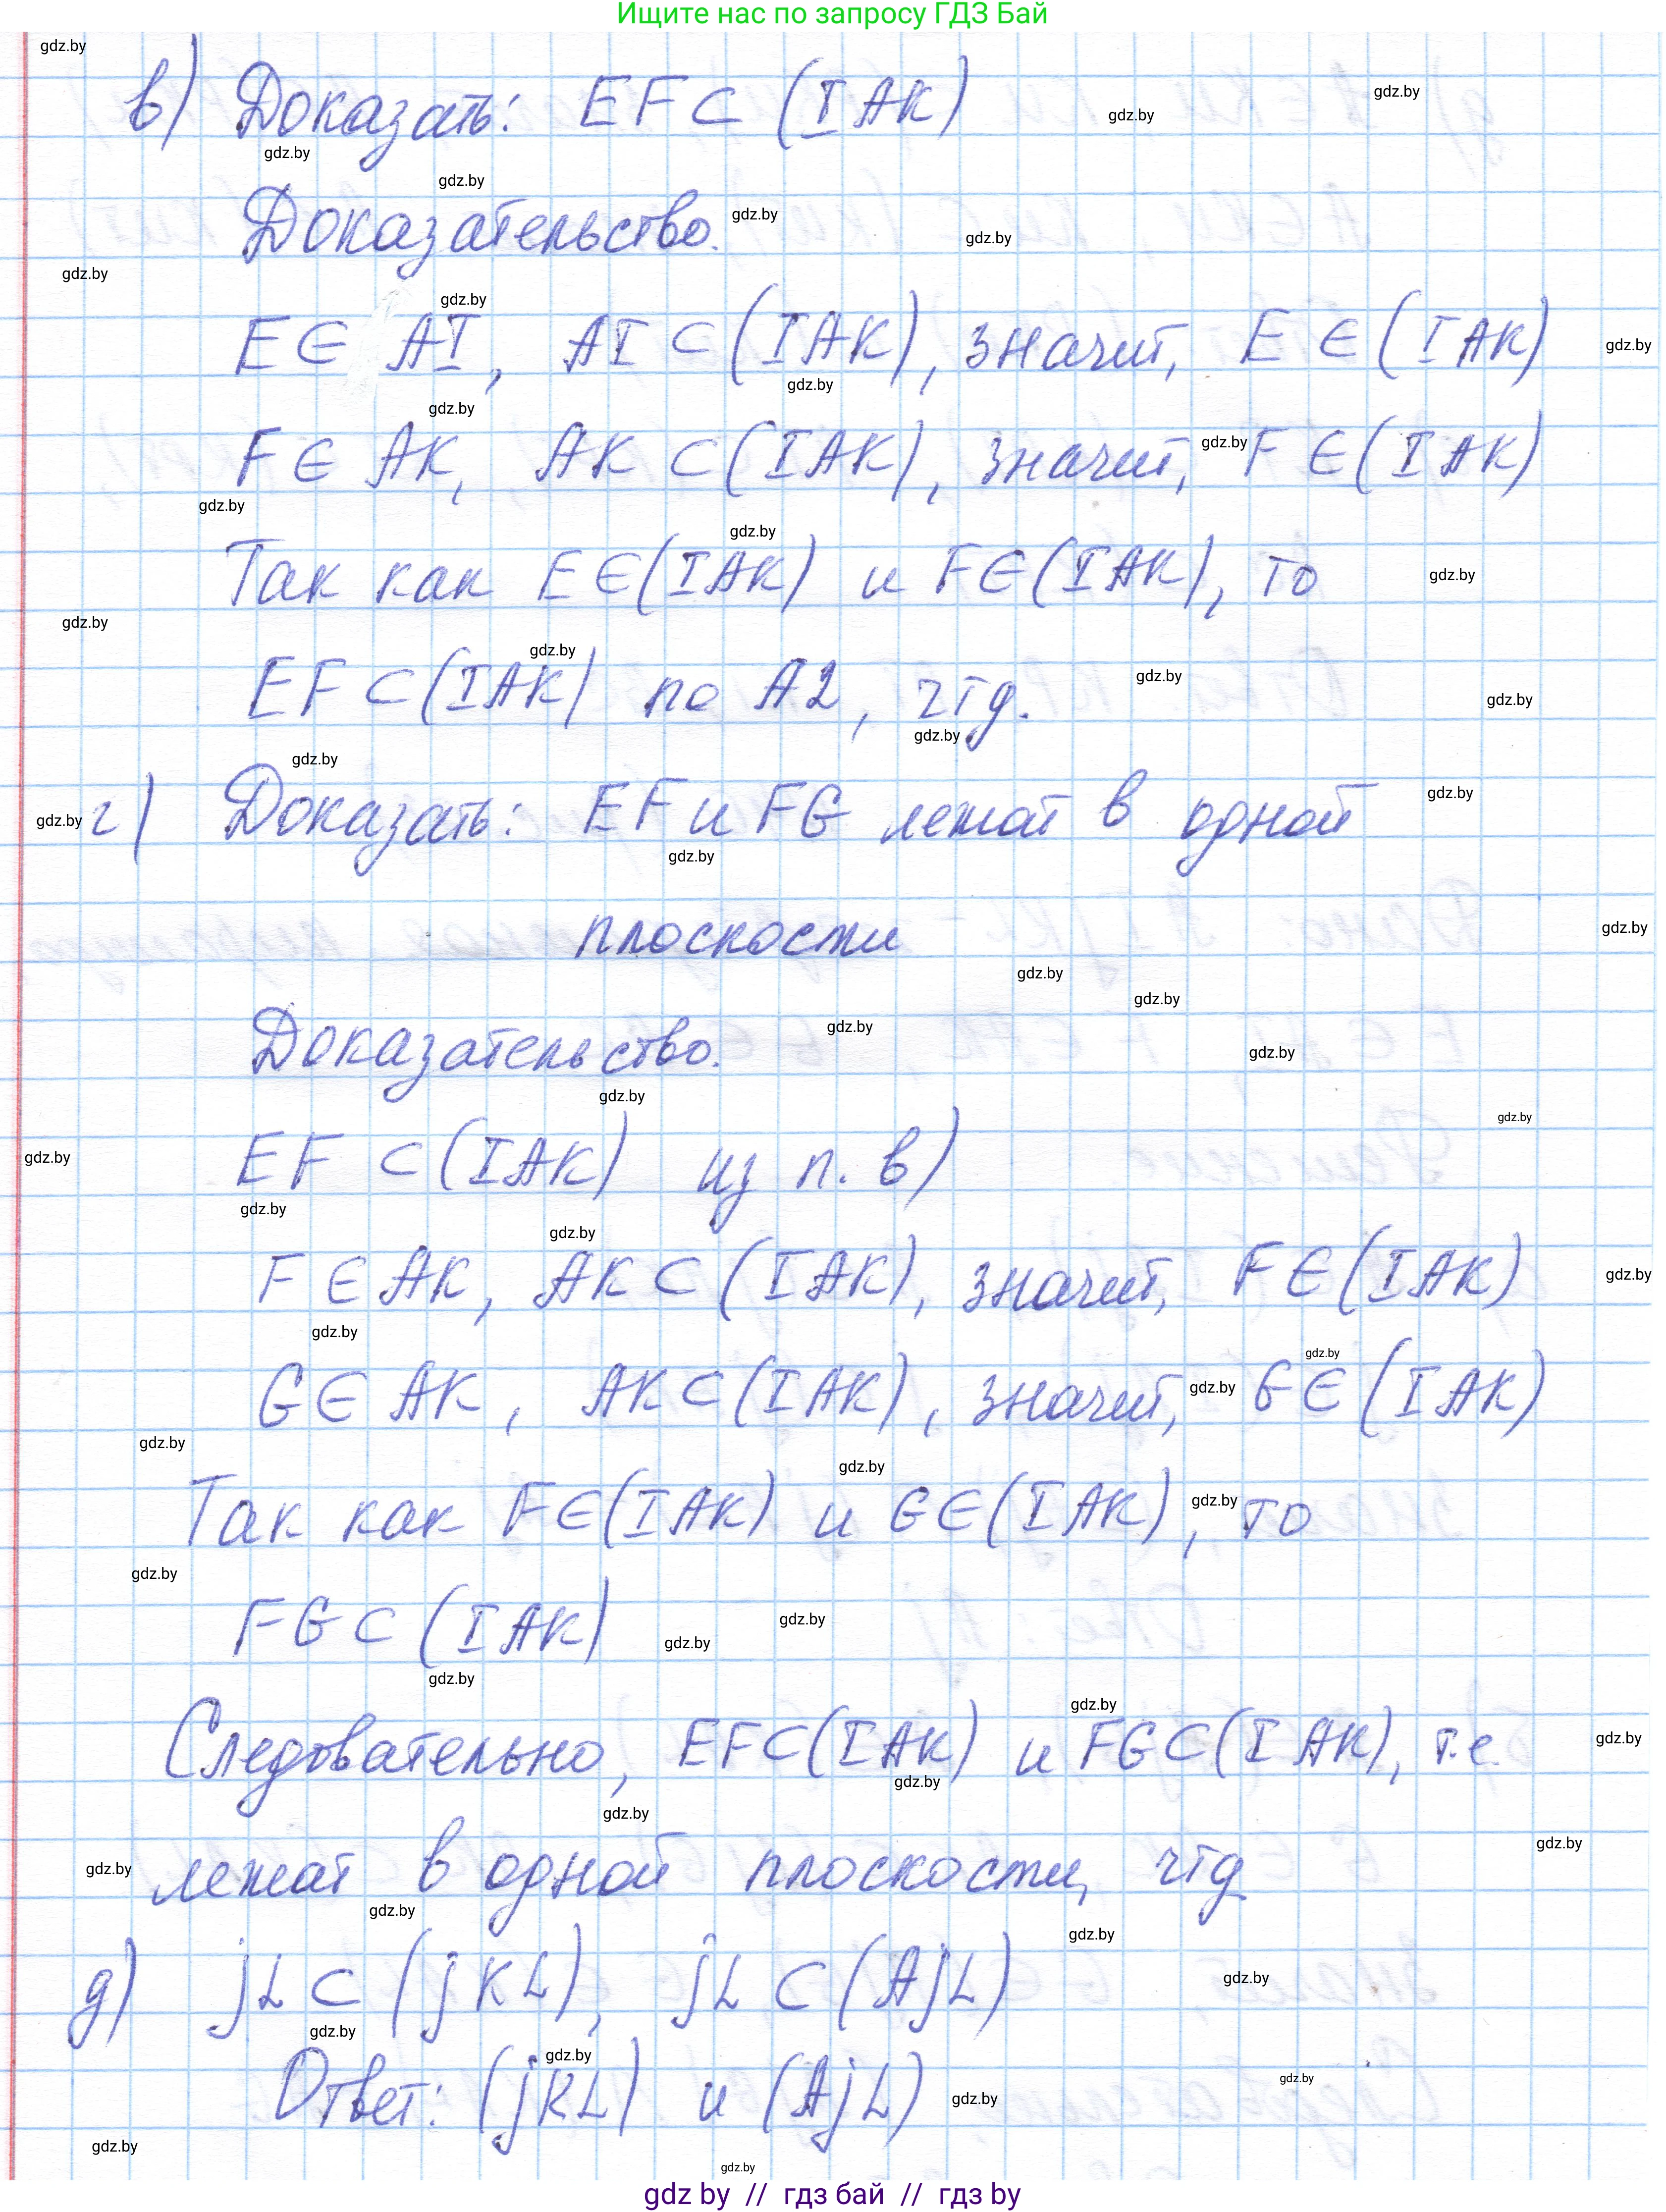 Ищите нас по запросу ГДЗ Бай
в) Доказать: EF ⊂ (IAK)
Доказательство.
E ∈ AI, AI ⊂ (IAK), значит, E ∈ (IAK)
F ∈ AK, AK ⊂ (IAK), значит, F ∈ (IAK)
Так как E ∈ (IAK) и F ∈ (IAK), то
EF ⊂ (IAK) по A2, чтд.
г) Доказать: EF и FG лежат в одной
плоскости
Доказательство.
EF ⊂ (IAK) из п. в)
F ∈ AK, AK ⊂ (IAK), значит, F ∈ (IAK)
G ∈ AK, AK ⊂ (IAK), значит, G ∈ (IAK)
Так как F ∈ (IAK) и G ∈ (IAK), то
FG ⊂ (IAK)
Следовательно, EF ⊂ (IAK) и FG ⊂ (IAK), т.е.
лежат в одной плоскости, чтд
д) jL ⊂ (jKL), jL ⊂ (AjL)
Ответ: (jKL) и (AjL)
gdz by // гдз бай // гдз by